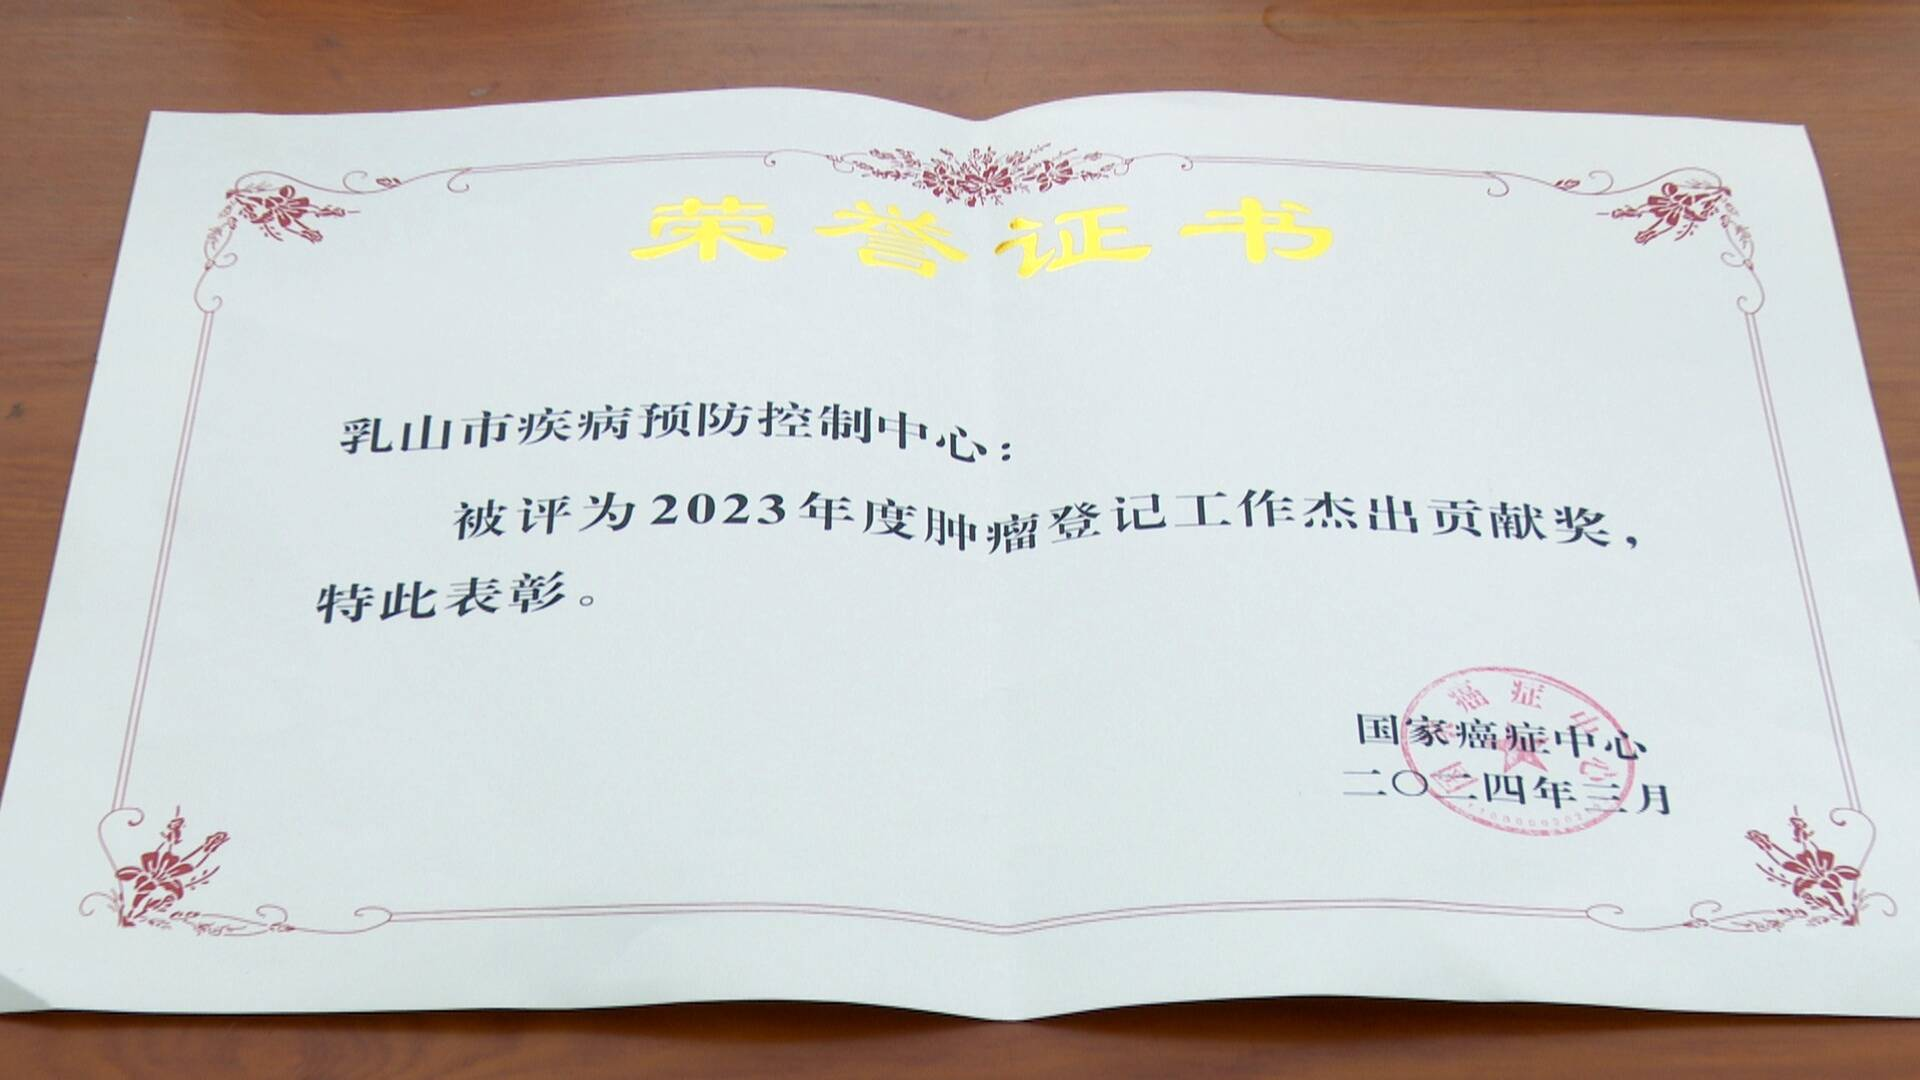 荣誉证书
乳山市疾病预防控制中心：
被评为2023年度肿瘤登记工作杰出贡献奖，
特此表彰。
国家癌症中心
二〇二四年三月
国家癌症中心